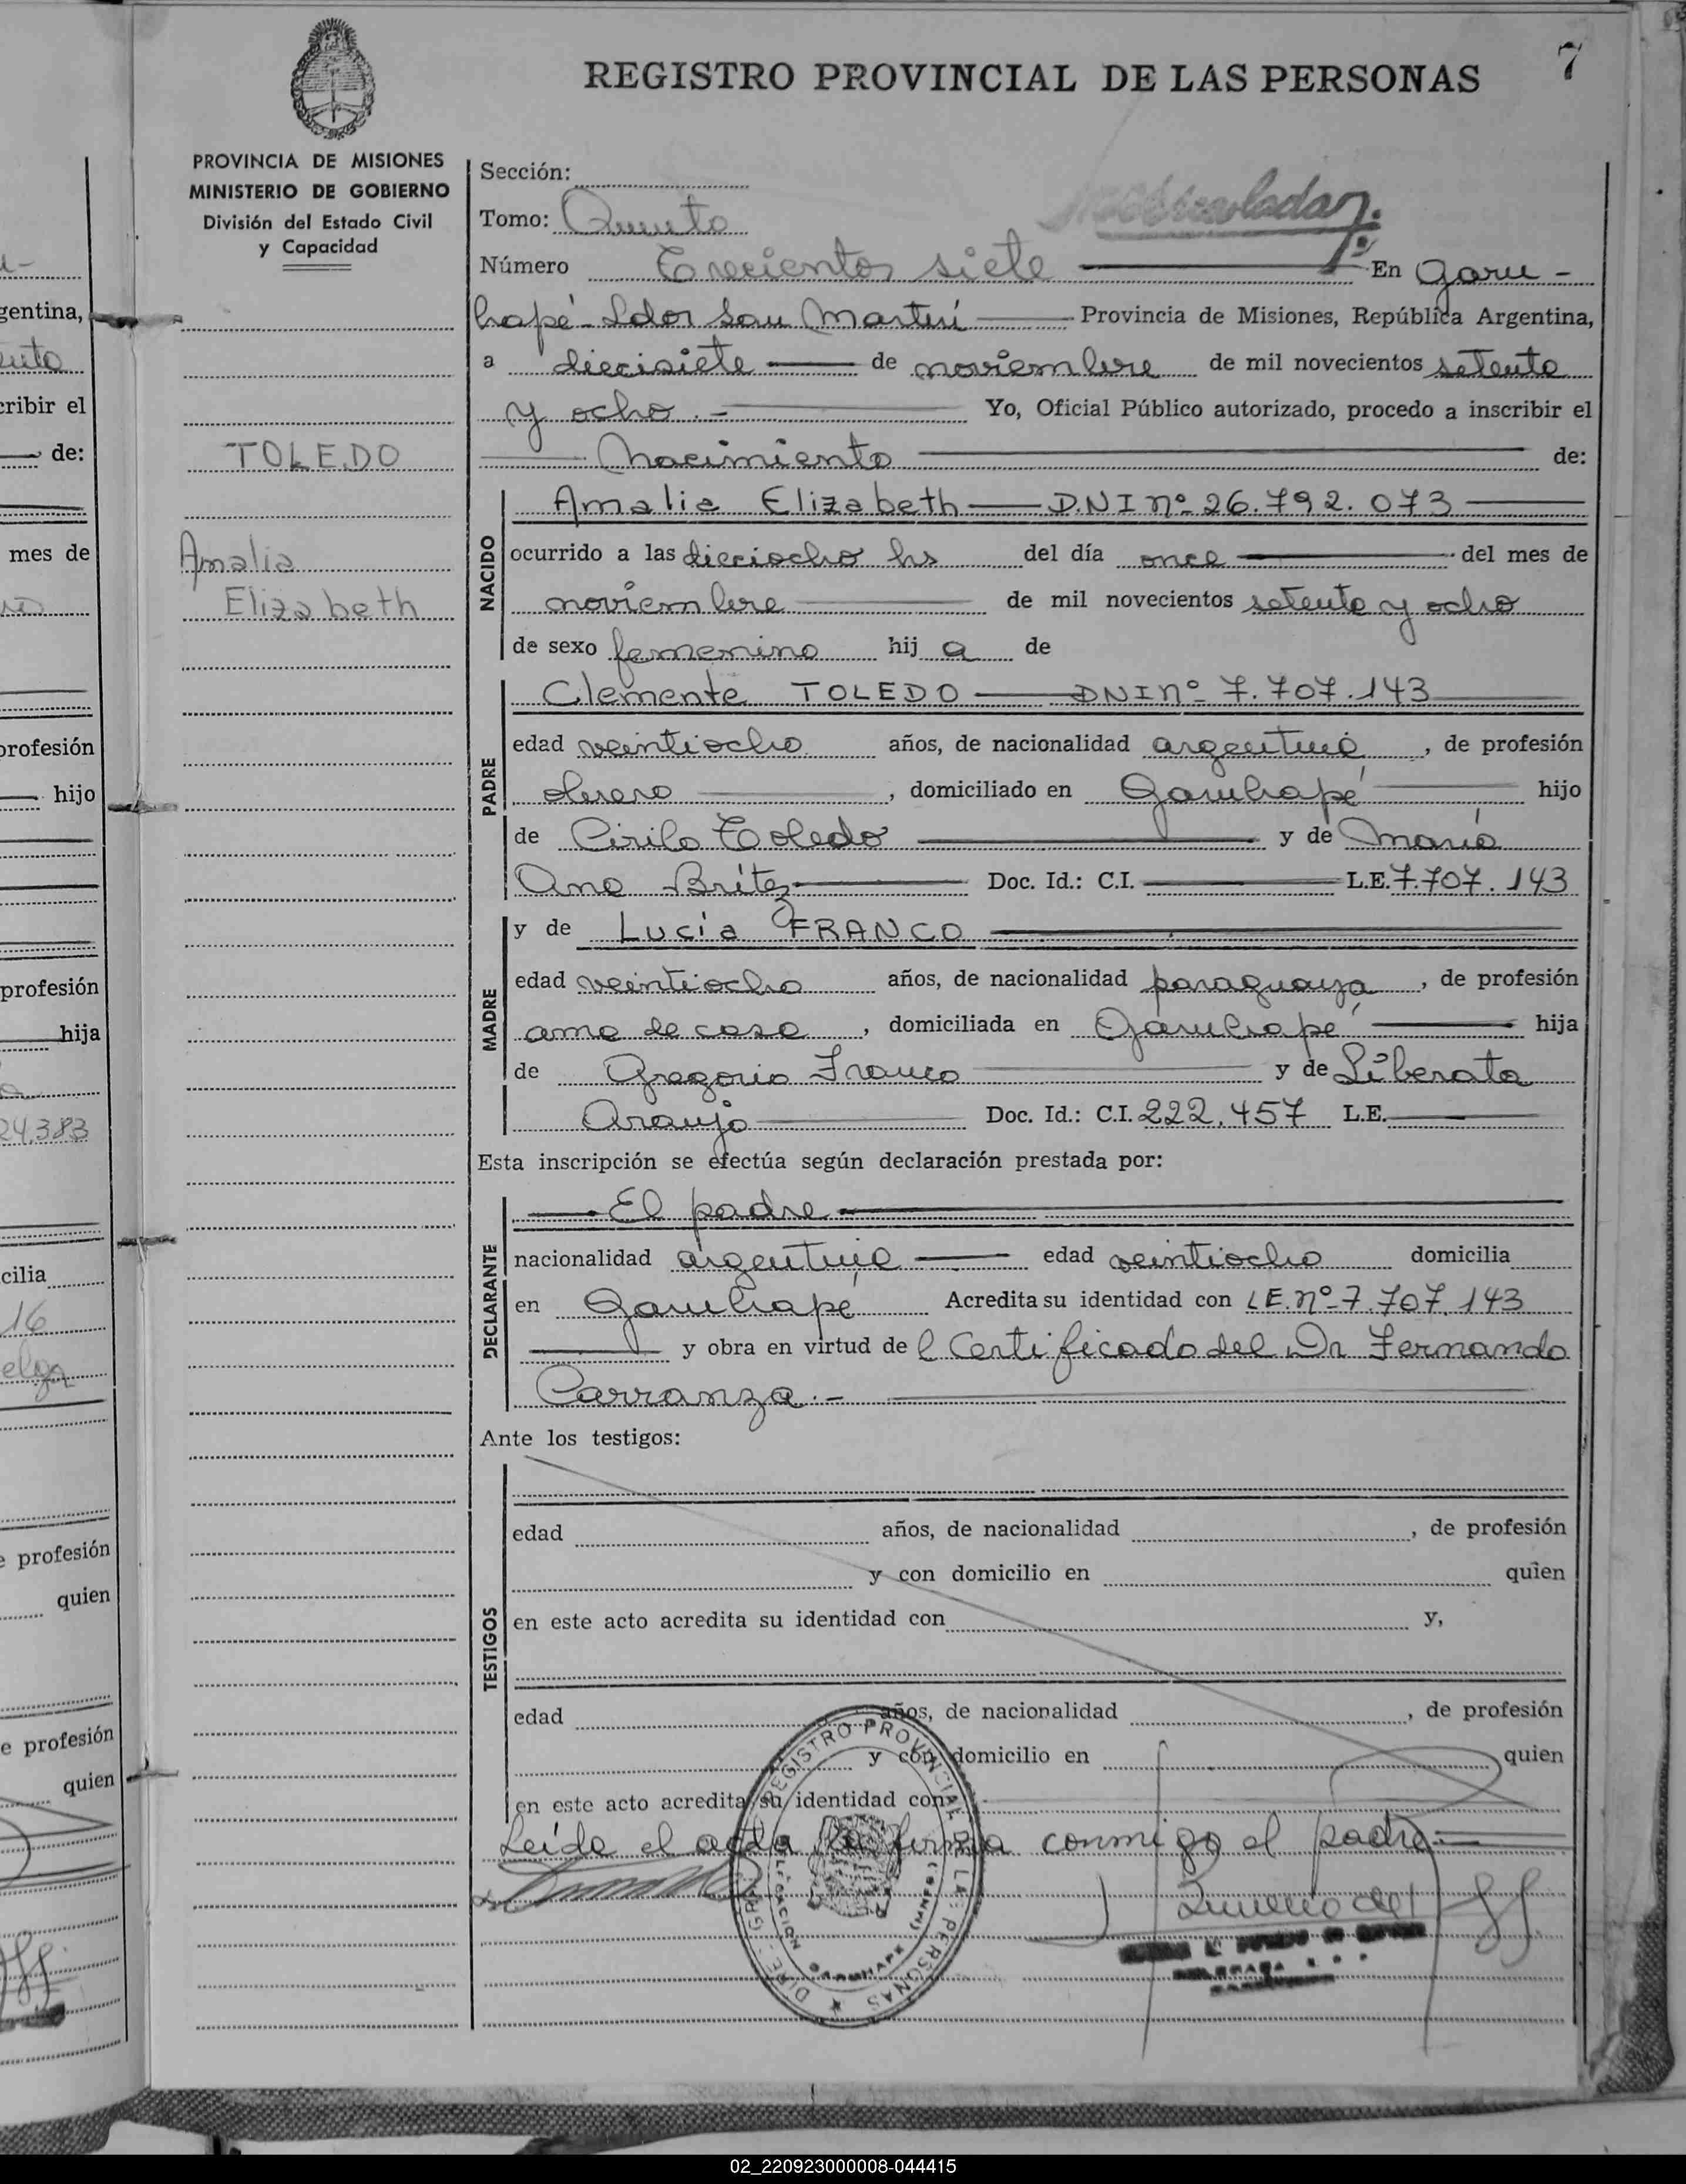 7
REGISTRO PROVINCIAL DE LAS PERSONAS
PROVINCIA DE MISIONES
MINISTERIO DE GOBIERNO
División del Estado Civil
y Capacidad
TOLEDO
Amalia
Elizabeth
Sección:
Tomo: Quinto
Número Trecientos siete En Garu-
hapé - Ldor San Martín Provincia de Misiones, República Argentina,
a diecisiete de noviembre de mil novecientos setenta
y ocho.- Yo, Oficial Público autorizado, procedo a inscribir el
Nacimiento de:
NACIDO
Amalia Elizabeth D.N.I nº 26.792.073
ocurrido a las dieciocho hs del día once del mes de
noviembre de mil novecientos setenta y ocho
de sexo femenino hij a de
PADRE
Clemente TOLEDO DNI nº 7.707.143
edad veintiocho años, de nacionalidad argentina, de profesión
obrero, domiciliado en Garuhapé hijo
de Cirilo Toledo y de María
Ana Britez Doc. Id.: C.I. L.E. 7.707.143
MADRE
y de Lucía FRANCO
edad veintiocho años, de nacionalidad paraguaya, de profesión
ama de casa, domiciliada en Garuhapé hija
de Gregorio Franco y de Liberata
Araujo Doc. Id.: C.I. 222.457 L.E.
Esta inscripción se efectúa según declaración prestada por:
DECLARANTE
El padre
nacionalidad argentina edad veintiocho domicilia
en Garuhapé Acredita su identidad con L.E. nº 7.707.143
y obra en virtud de l Certificado del Dr Fernando
Carranza.-
Ante los testigos:
TESTIGOS
edad años, de nacionalidad , de profesión
y con domicilio en quien
en este acto acredita su identidad con y,
edad años, de nacionalidad , de profesión
y con domicilio en quien
en este acto acredita su identidad con
Leída el acta la firma conmigo el padre.
REGISTRO PROVINCIAL DE LAS PERSONAS
DELEGACION
GARUHAPE (MNES)
gentina,
cribir el
de:
mes de
profesión
hijo
profesión
hija
24.383
cilia
16
e profesión
quien
e profesión
quien
02_220923000008-044415